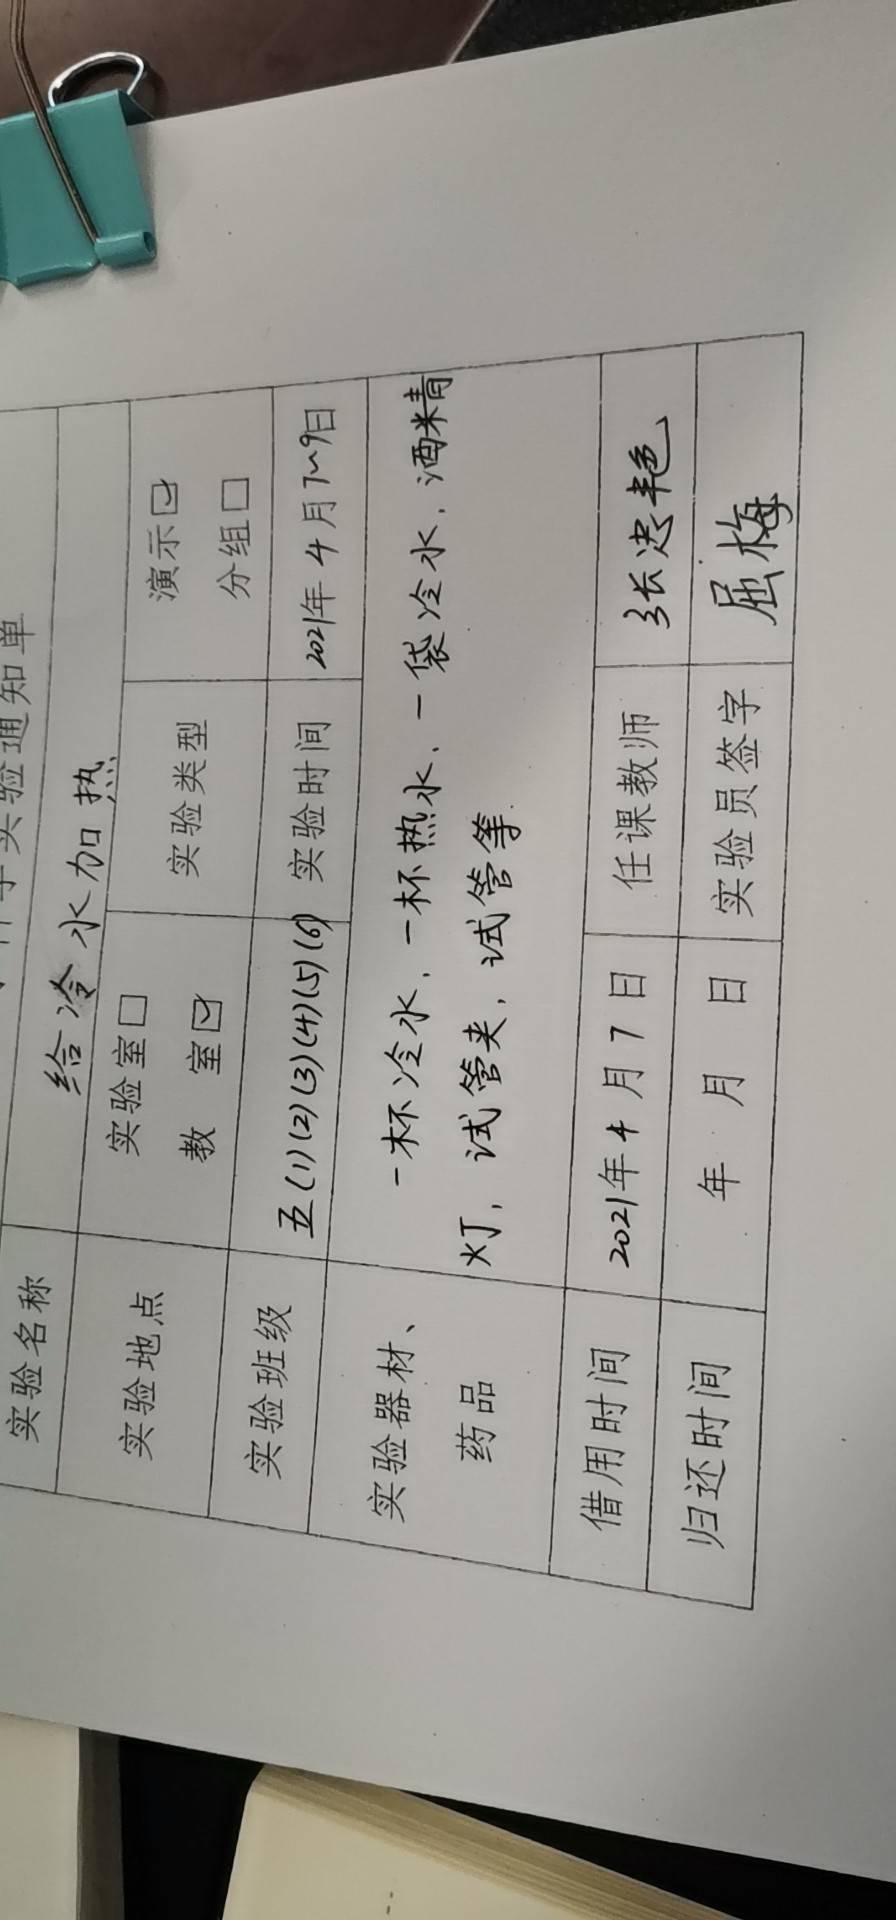 学实验通知单
实验名称 给冷水加热
实验地点 实验室□ 教 室☑ 实验类型 演示☑ 分组□
实验班级 五(1)(2)(3)(4)(5)(6) 实验时间 2021年4月7~9日
实验器材、 一杯冷水、一杯热水、一袋冷水、酒精
药品 灯，试管夹，试管等.
借用时间 2021年4月7日 任课教师 张忠艳
归还时间 年 月 日 实验员签字 屈梅